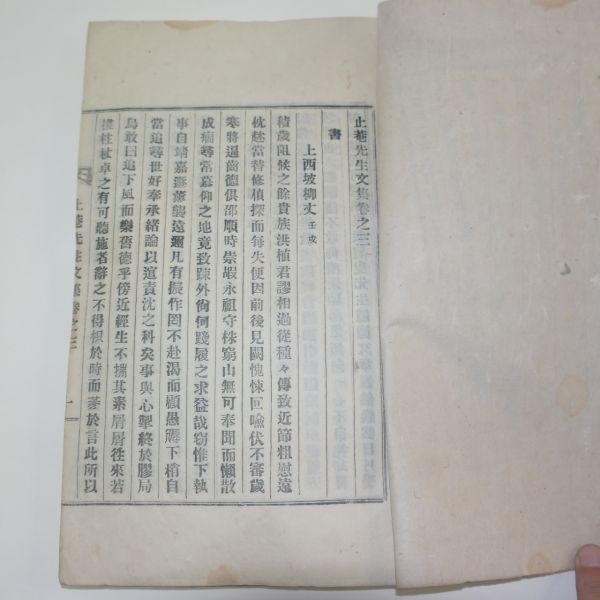 止菴先生文集卷之三
書
上西坡柳丈 壬戌
積歲阻候之餘貴族洪植君謬相過從種々傳致近節粗慰遠
枕趍當替修偵探而每失便因前後見闕愧悚叵喩伏不審歲
寒將逼齒德俱邵順時崇嘏永祖守株窮山無可奉聞而懶散
成痼尋當慕仰之地竟致踈外尙何踐履之求益哉竊惟下執
事自靖嘉遯薰襲遠邇凡有振作罔不赴渴而顧愚 下梢自
當追尋世好奉承緖論以逭責沈之科矣事與心掣終於膠局
烏敢曰追下風而樂舊德乎傍近經生不揣其素屑屑徃來若
拄杖卓之有可聽施者辭之不得 於時而 於言此所以
止菴先生文集卷之三
一